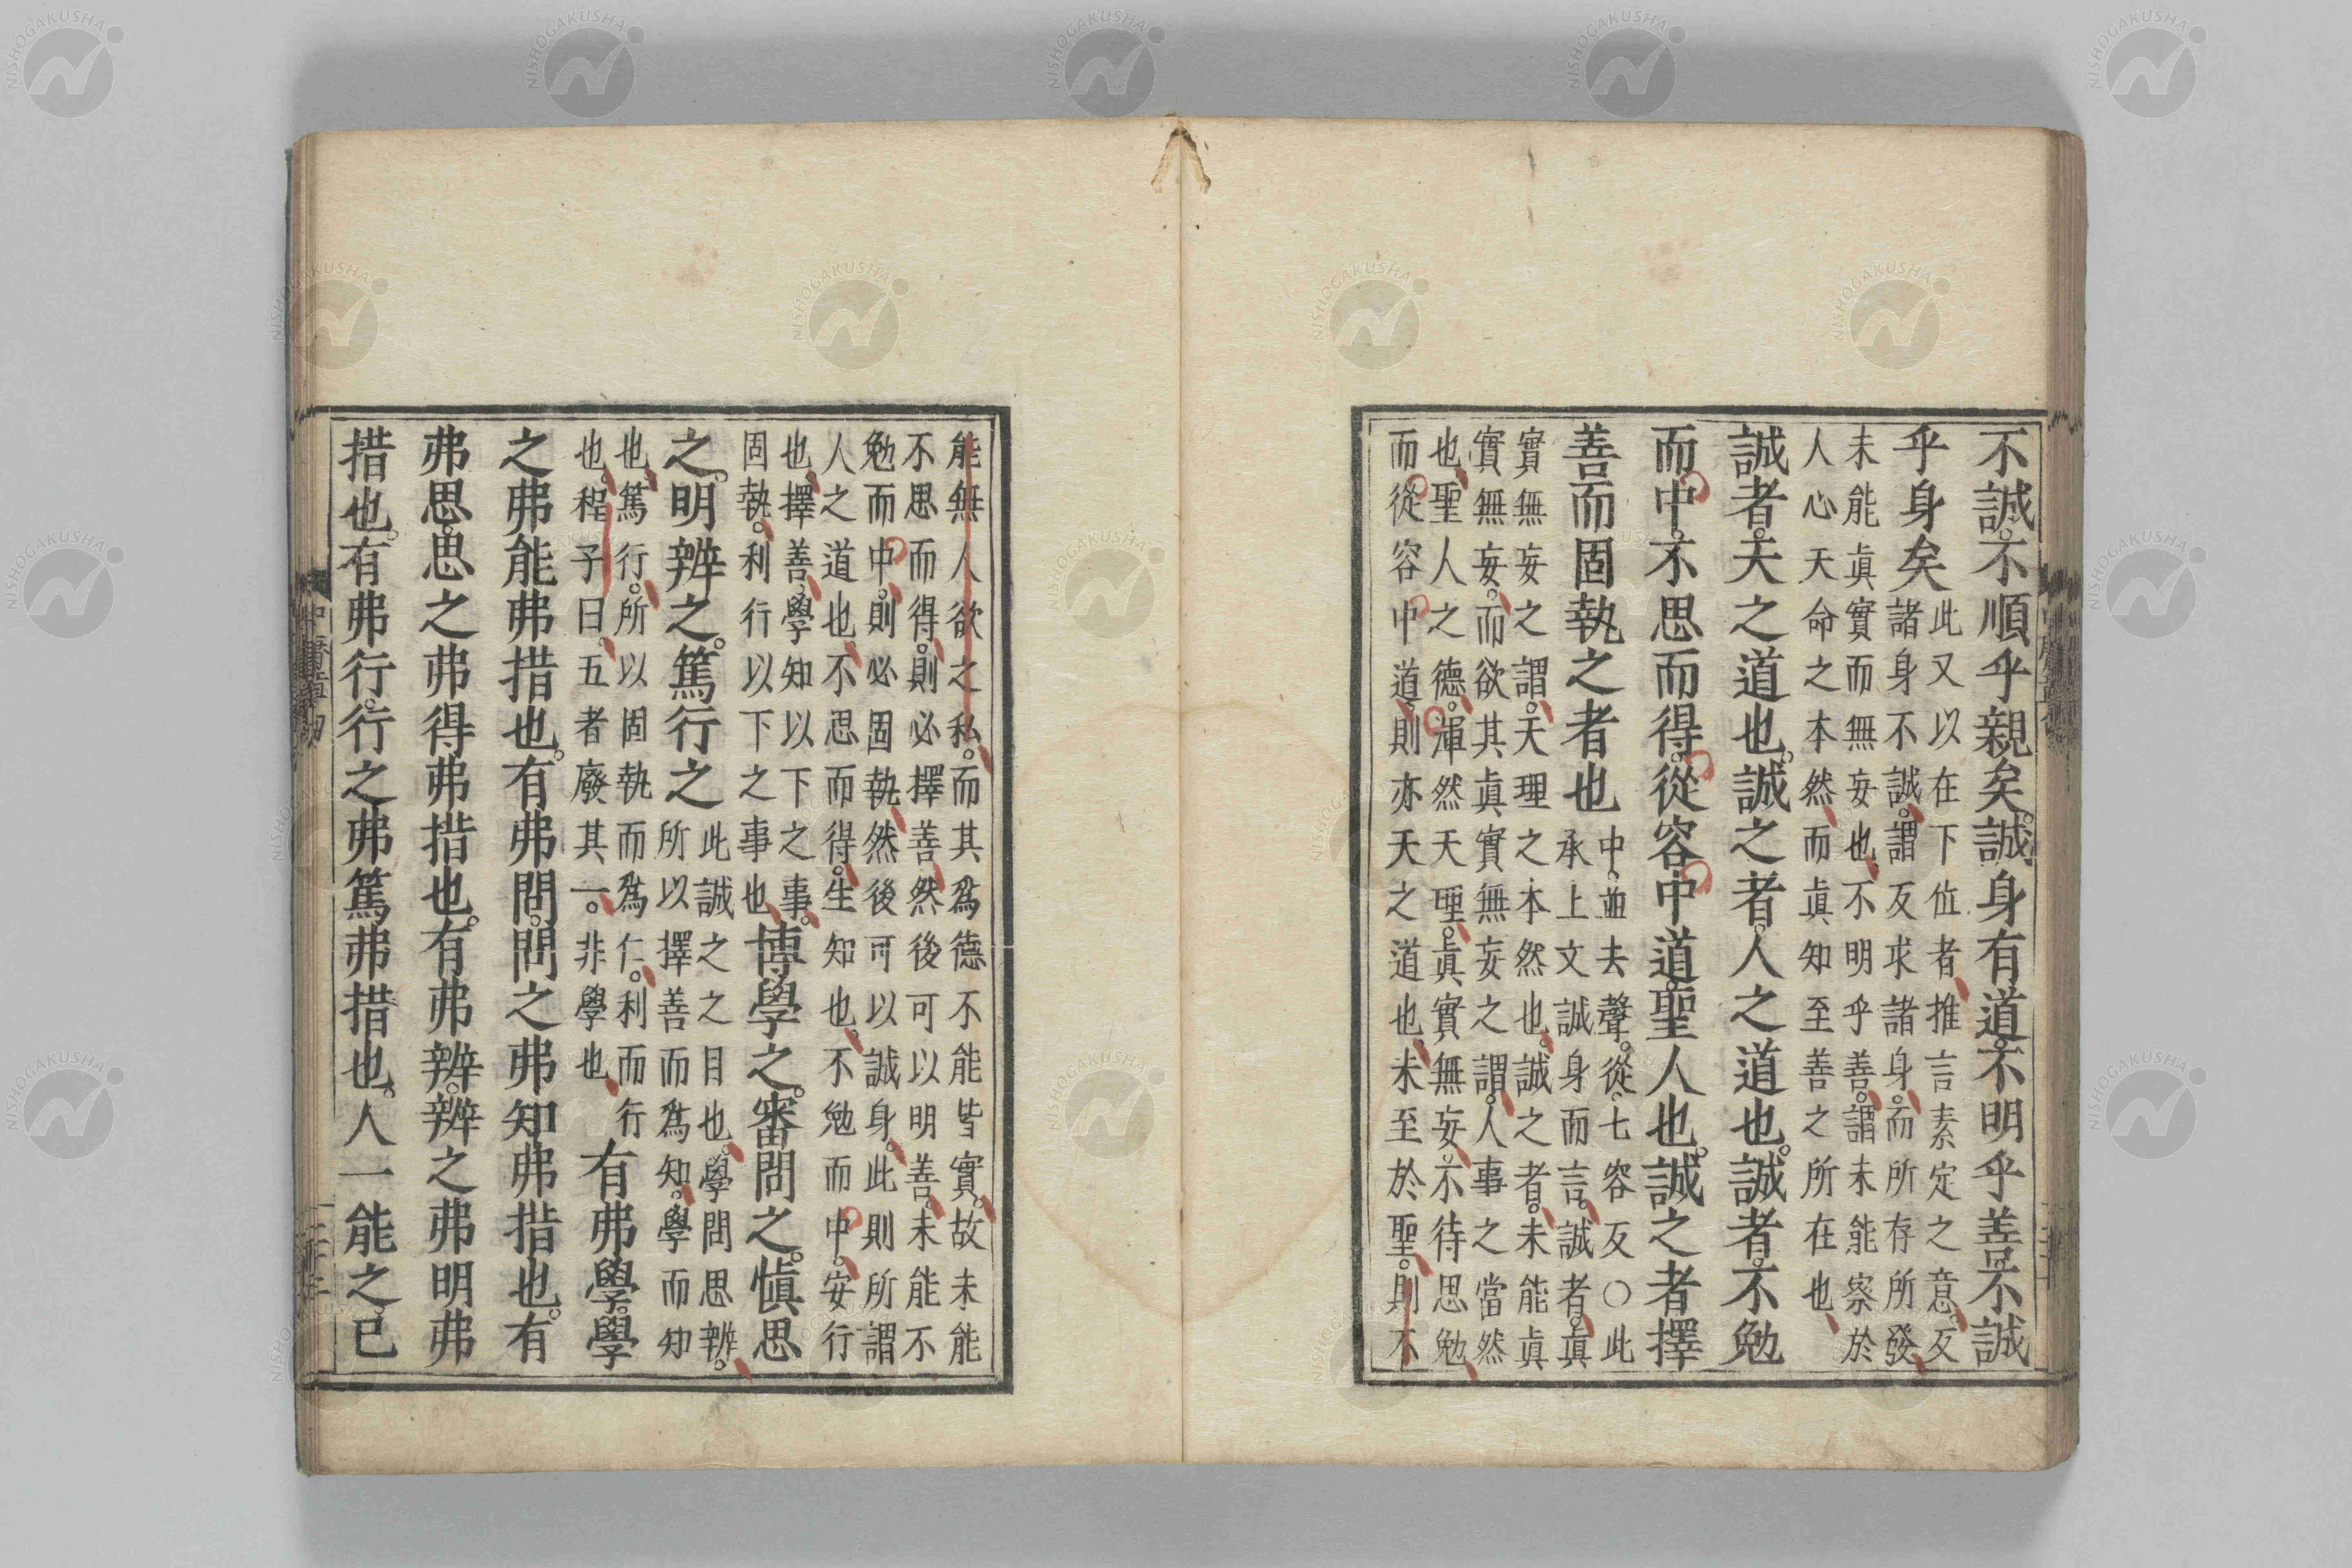 不誠。不順乎親矣。誠身有道。不明乎善。不誠
乎身矣
此又以在下位者。推言素定之意。反
諸身不誠。謂反求諸身。而所存所發
未能眞實而無妄也。不明乎善。謂未能察於
人心天命之本然。而眞知至善之所在也
誠者。天之道也。誠之者。人之道也。誠者。不勉
而中。不思而得。從容中道。聖人也。誠之者。擇
善而固執之者也
中。並去聲。從。七容反○此
承上文誠身而言。誠者。眞
實無妄之謂。天理之本然也。誠之者。未能眞
實無妄。而欲其眞實無妄之謂。人事之當然
也。聖人之德。渾然天理。眞實無妄。不待思勉
而從容中道。則亦天之道也。未至於聖。則不
能無人欲之私。而其爲德不能皆實。故未能
不思而得。則必擇善。然後可以明善。未能不
勉而中。則必固執。然後可以誠身。此則所謂
人之道也。不思而得。生知也。不勉而中。安行
也。擇善。學知以下之事。
固執。利行以下之事也
博學之。審問之。愼思
之。明辨之。篤行之
此誠之之目也。學問思辨。
所以擇善而爲知。學而知
也。篤行。所以固執而爲仁。利而行
也。程子曰。五者廢其一。非學也
有弗學。學
之弗能弗措也。有弗問。問之弗知弗措也。有
弗思。思之弗得弗措也。有弗辨。辨之弗明弗
措也。有弗行。行之弗篤弗措也。人一能之己
NISHOGAKUSHA